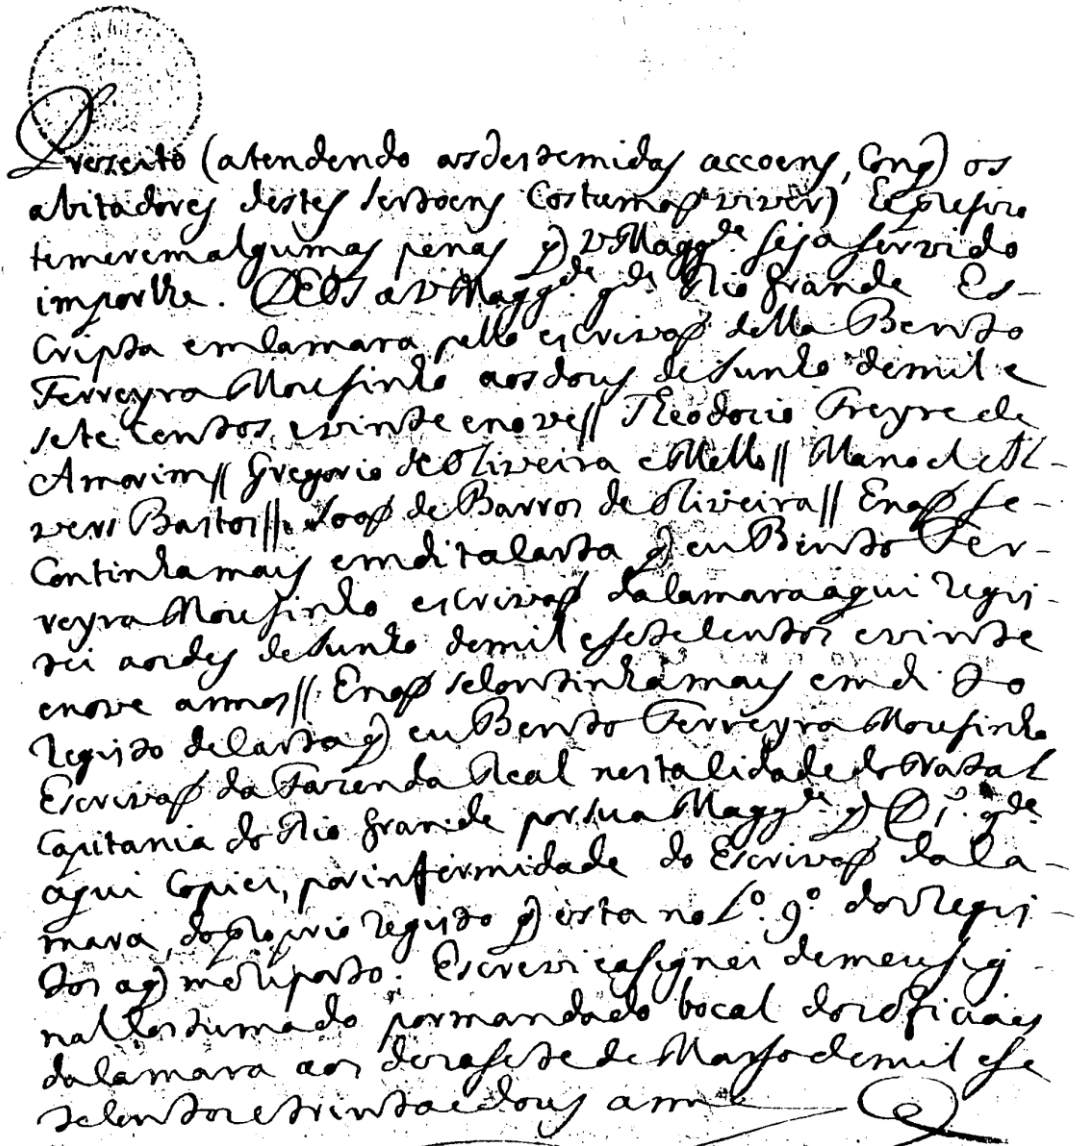 Prezeito (atendendo as destemidas accoens, Com q os
abitadores destes sertoens Costumaõ viver) E q prefiro
temerem algumas penas q V Magg.de seja servido
imporlhe. DEOS a V Magg.de g.de Rio Grande Es-
Cripta em Camara pello escrivaõ della Bento
Ferreyra Mousinho aos dous de Junho de mil e
sete Centos, e vinte e nove// Theodocio Freyre de
Amorim// Gregorio de Oliveira e Mello// Manoel de Al-
veres Bastos// Joaõ de Barros de Oliveira// E naõ se
Continha mais em dita Carta q eu Bento Fer-
reyra Mousinho escrivaõ da Camara aqui regis-
tei aos des de Junho de mil e sete Centos e vinte
e nove annos// E naõ se Continha mais em di to
registo de Carta q eu Bento Ferreyra Mousinho
Escrivaõ da Fazenda Real nesta Cidade do Natal
Capitania do Rio Grande por sua Magg.de q D.s g.de
aqui Copiei, por infermidade do Escrivaõ da Ca-
mara, do proprio registo q esta no L.o 9.o dos regis-
tos a q me reporto. Escrevi e asignei de meu sig-
nal Costumado por mandado bocal dos oficiais
da Camara aos dezasete de Marso de mil e se
te Centos e trinta e dous annos